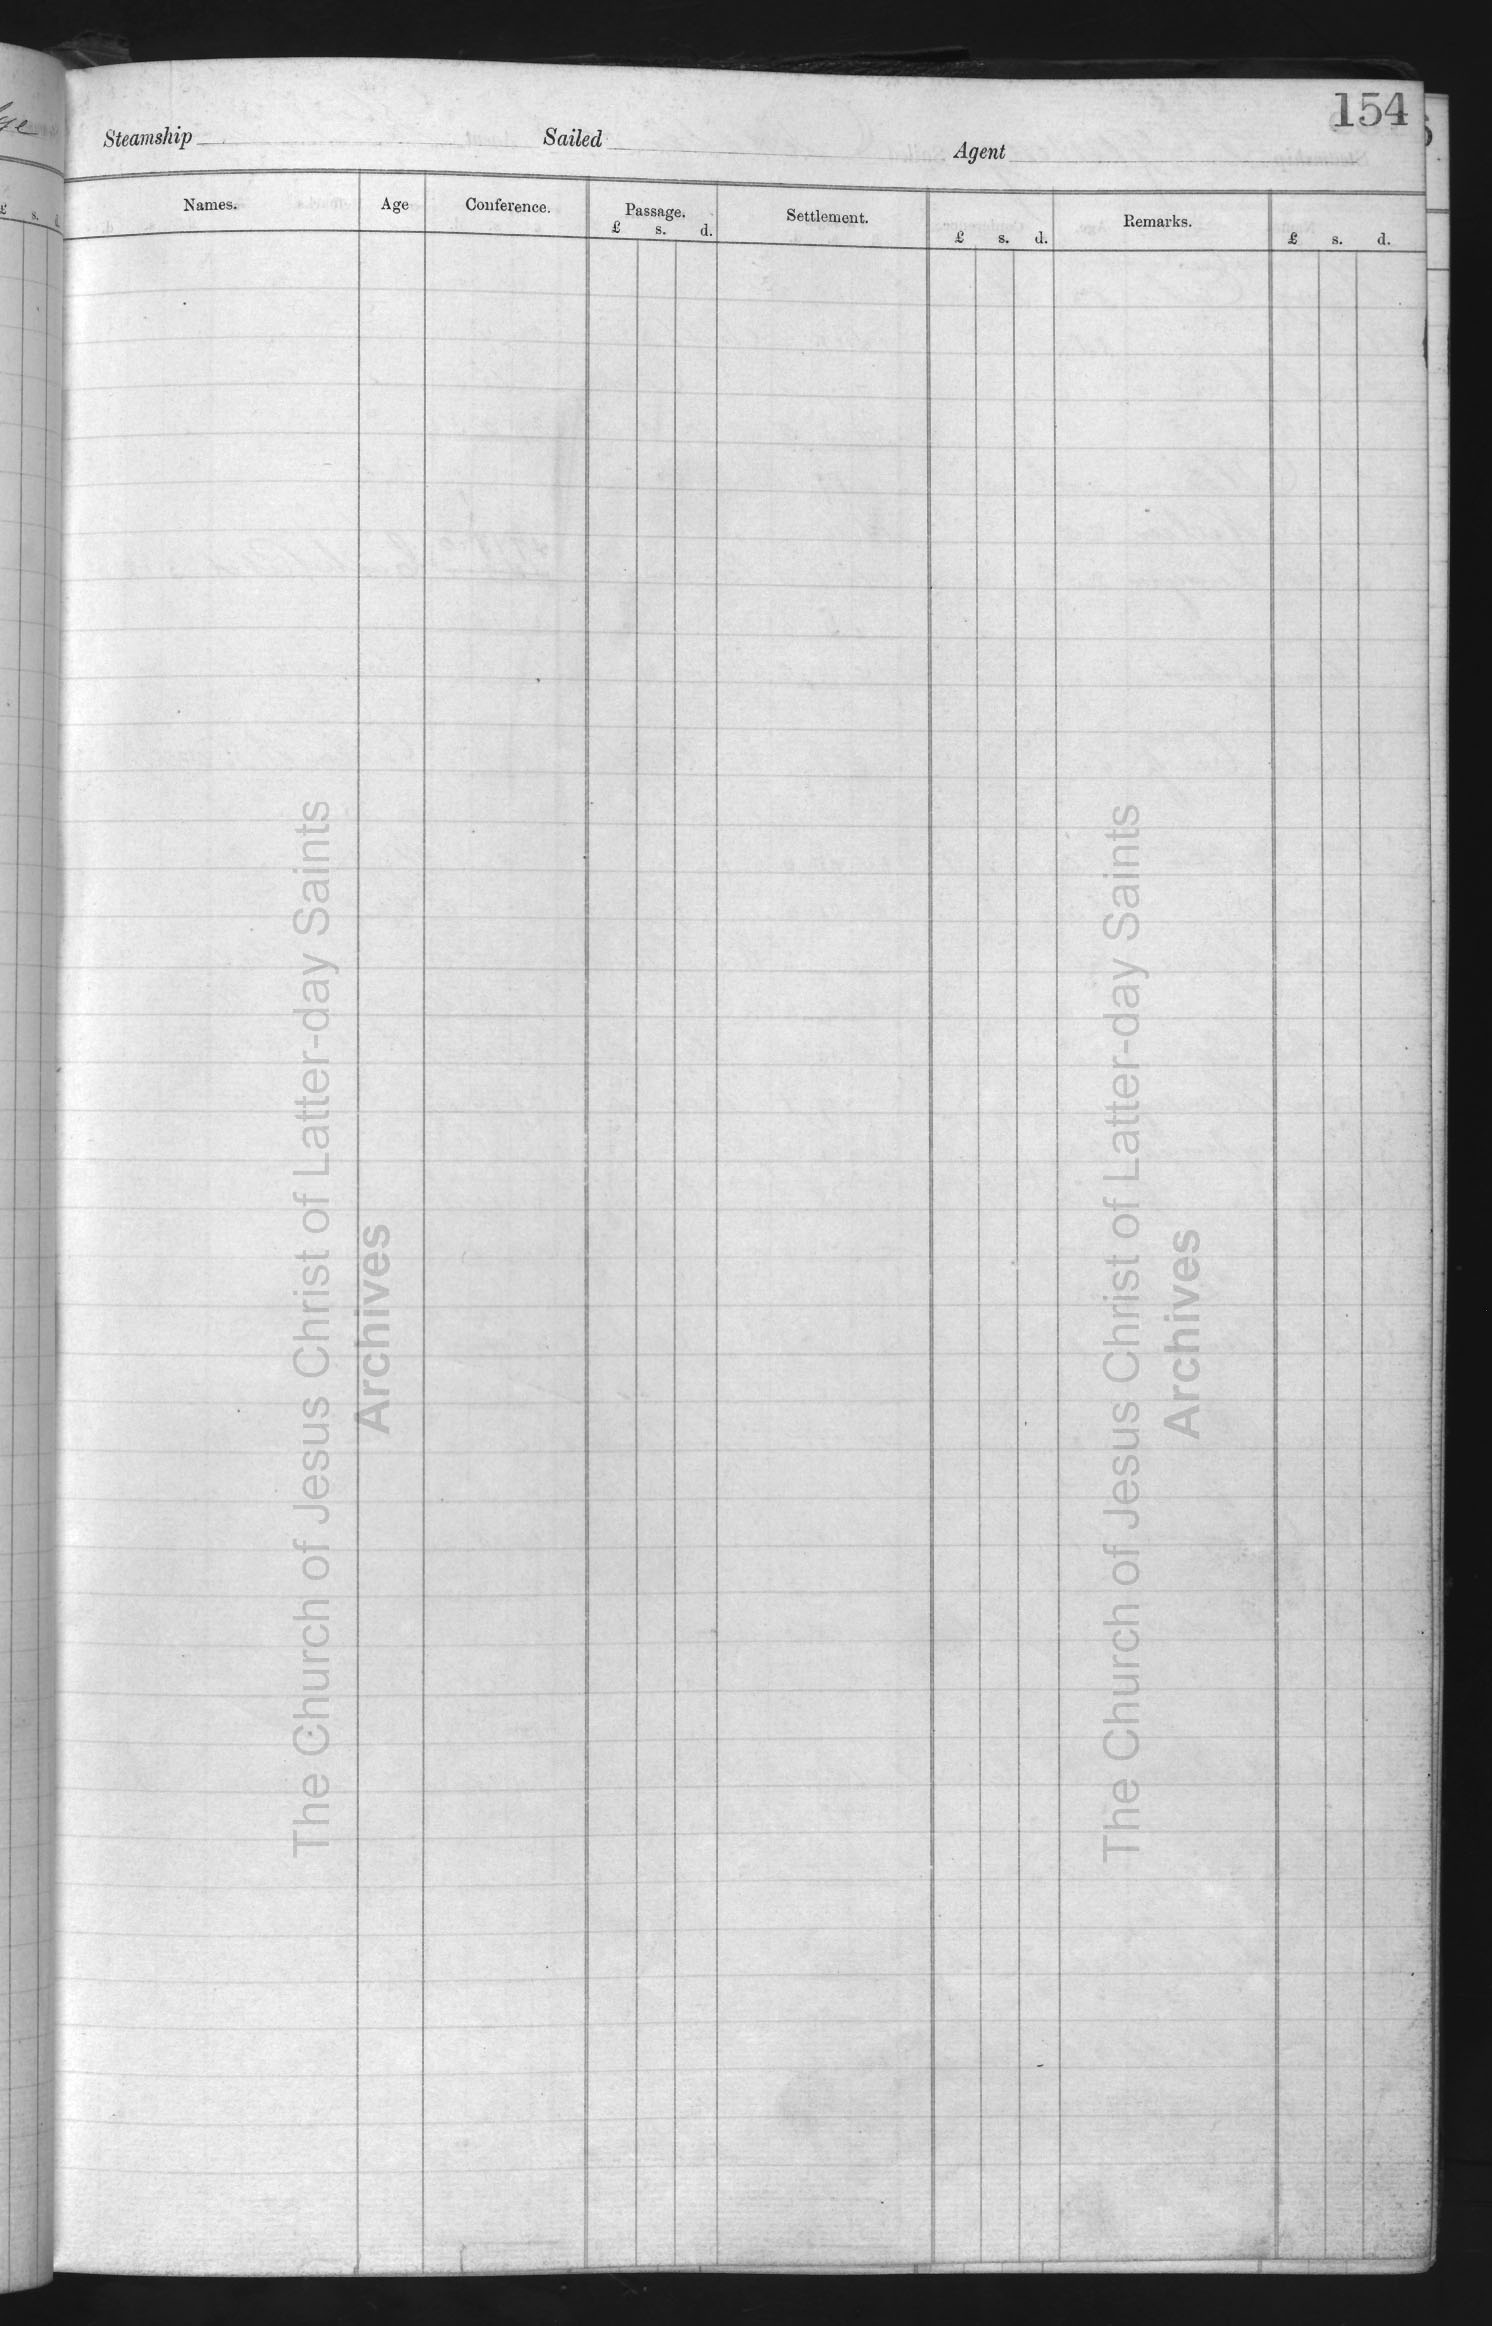 154
Steamship Sailed Agent
Names. Age Conference. Passage. Settlement. Remarks.
£ s. d. £ s. d. £ s. d.
£ s. d.
The Church of Jesus Christ of Latter-day Saints
Archives
The Church of Jesus Christ of Latter-day Saints
Archives